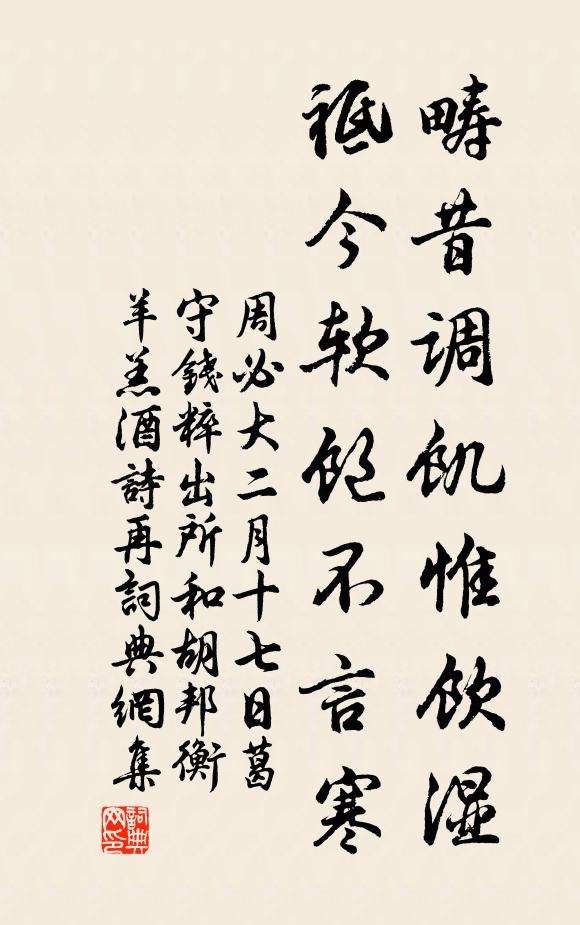 疇昔調飢惟飲湿
祗今软飽不言寒
周必大二月十七日葛
守錢粹出所和胡邦衡
羊羔酒詩再詞典網集
詞典
网印